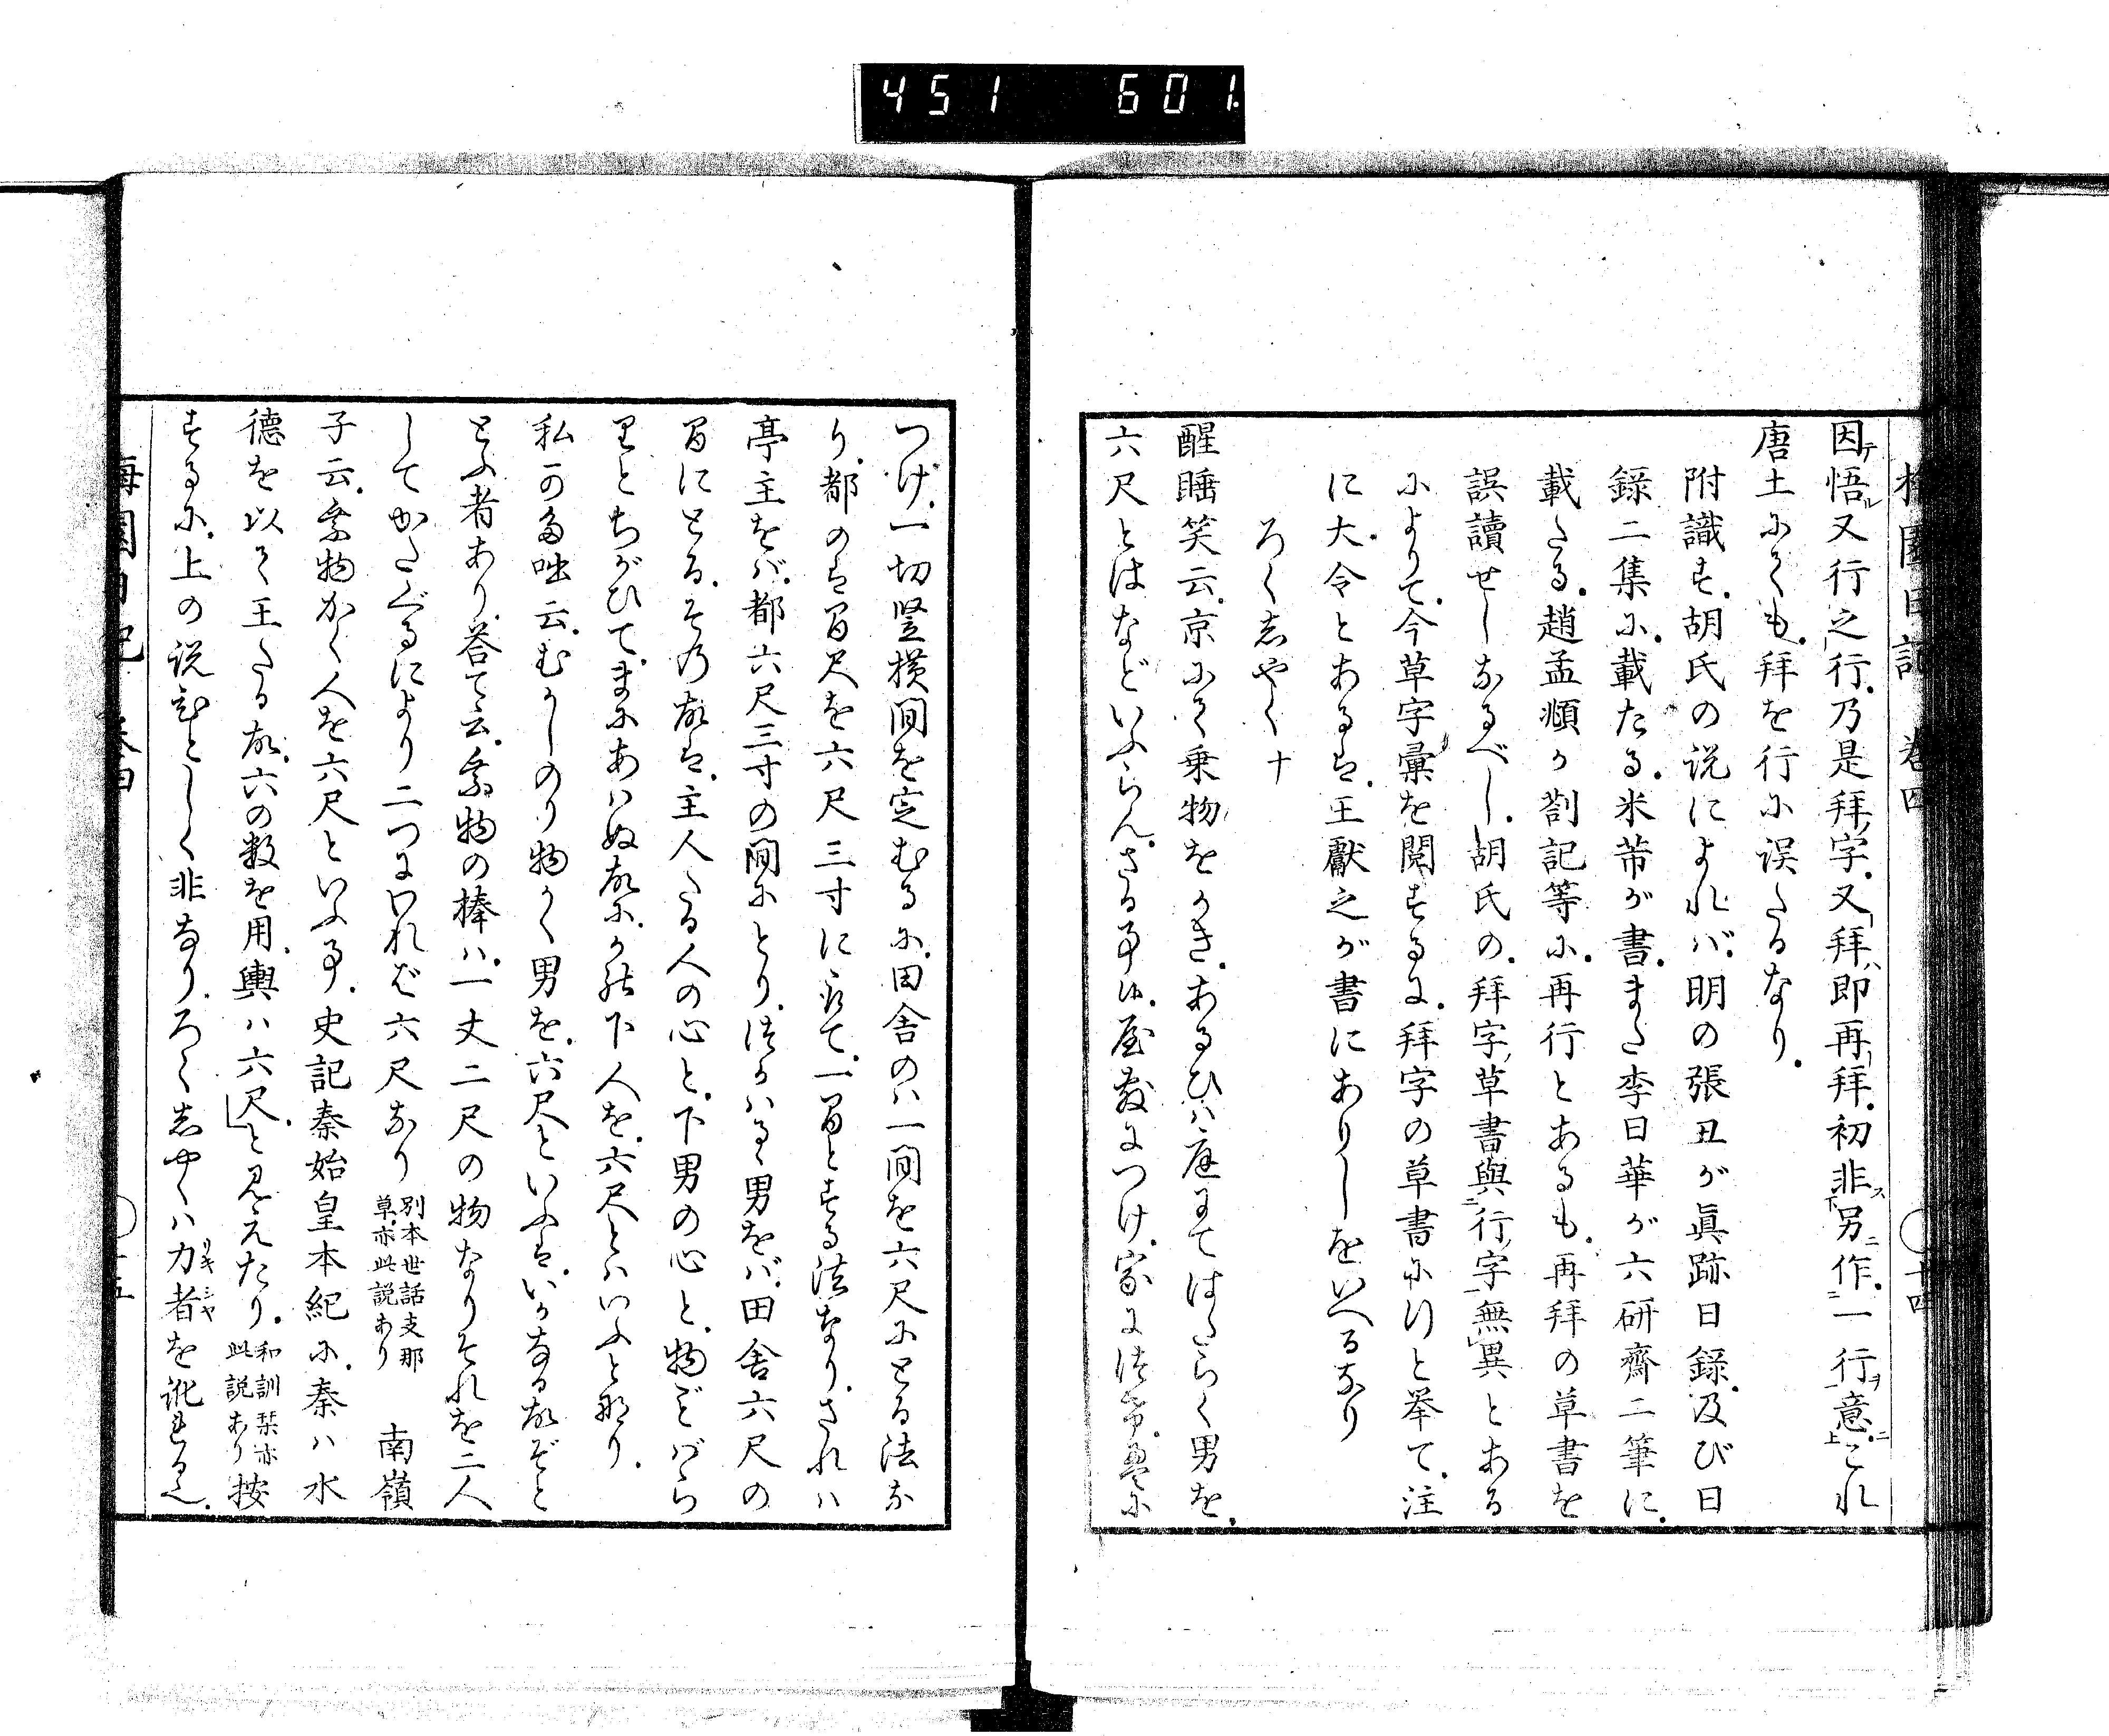 451 601
梅園日記 卷四 十四
因テ悟ル又行之行乃是拜字又拜ハ即再拜初非ス下另ニ作二一行ヲ一意ニ上これ
唐土にても拜を行に誤たるなり
附識す胡氏の説によれバ明の張丑が眞跡日錄及び日
錄二集に載たる米芾が書また李日華が六研齋二筆に
載たる趙孟頫が劄記等に再行とあるも再拜の草書を
誤讀せしなるべし胡氏の拜字草書與行字無異とある
によりて今草字彙を閲するに拜字の草書に行と挙て注
に大令とあるは王獻之が書にありしをいへるなり
ろくしやく十
醒睡笑云京にて乗物をかきあるひハ庭にてはたらく男を
六尺とはなどいふらんさる事は屋敷につけ家につけ
つけ一切竪横間を定むるに田舍のハ一間を六尺にとる法な
り都のは間尺を六尺三寸に了て一間とする法なりされハ
亭主をバ都六尺三寸の間にとりつかハるゝ男をバ田舍六尺の
間にとるその故は主人たる人の心と下男の心と物ごとばら
りとちがひてまにあハぬ故にかの下人を六尺とハいふと那り
私可多咄云むかしのり物かく男を六尺といふはいかなる故ぞと
とふ者あり答て云乗物の棒ハ一丈二尺の物なりそれを二人
してかたぐるにより二つにわれば六尺なり 別本世話支那草亦此説あり 南嶺
子云乗物かく人を六尺といふ事史記秦始皇本紀に秦ハ水
德を以て王たる故六の数を用輿ハ六尺と見えたり 和訓栞亦此説あり 按
するに上の説ひとしく非なりろくしやくハ力者リキシヤを訛れる也
梅園日記 卷四 十五